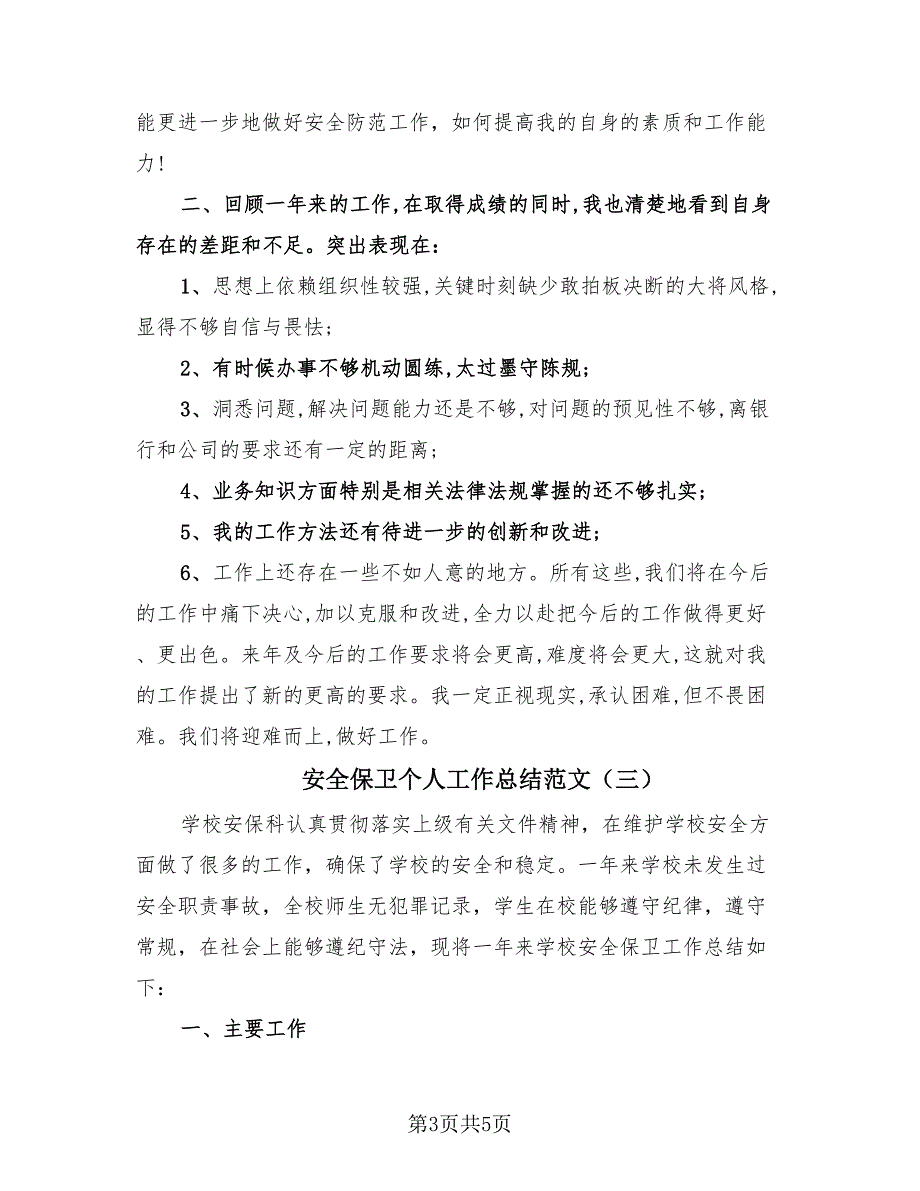 能更进一步地做好安全防范工作，如何提高我的自身的素质和工作能
力!
二、回顾一年来的工作,在取得成绩的同时,我也清楚地看到自身
存在的差距和不足。突出表现在：
1、思想上依赖组织性较强,关键时刻缺少敢拍板决断的大将风格,
显得不够自信与畏怯;
2、有时候办事不够机动圆练,太过墨守陈规;
3、洞悉问题,解决问题能力还是不够,对问题的预见性不够,离银
行和公司的要求还有一定的距离;
4、业务知识方面特别是相关法律法规掌握的还不够扎实;
5、我的工作方法还有待进一步的创新和改进;
6、工作上还存在一些不如人意的地方。所有这些,我们将在今后
的工作中痛下决心,加以克服和改进,全力以赴把今后的工作做得更好
、更出色。来年及今后的工作要求将会更高,难度将会更大,这就对我
的工作提出了新的更高的要求。我一定正视现实,承认困难,但不畏困
难。我们将迎难而上,做好工作。
安全保卫个人工作总结范文（三）
学校安保科认真贯彻落实上级有关文件精神，在维护学校安全方
面做了很多的工作，确保了学校的安全和稳定。一年来学校未发生过
安全职责事故，全校师生无犯罪记录，学生在校能够遵守纪律，遵守
常规，在社会上能够遵纪守法，现将一年来学校安全保卫工作总结如
下：
一、主要工作
第3页共5页